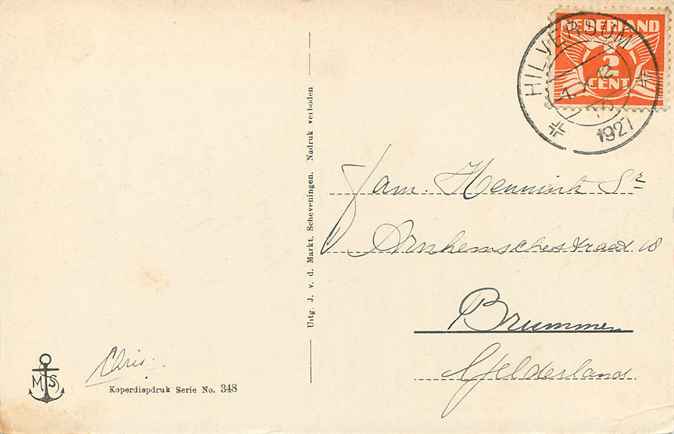 NEDERLAND
2
CENT
HILVERSUM
1927
Fam. Hennink Sr
Arnhemschestraat 18
Brummen
Gelderland
Uitg. J. v. d. Markt. Scheveningen. Nadruk verboden
Chris.
M S
Koperdiepdruk Serie No. 348